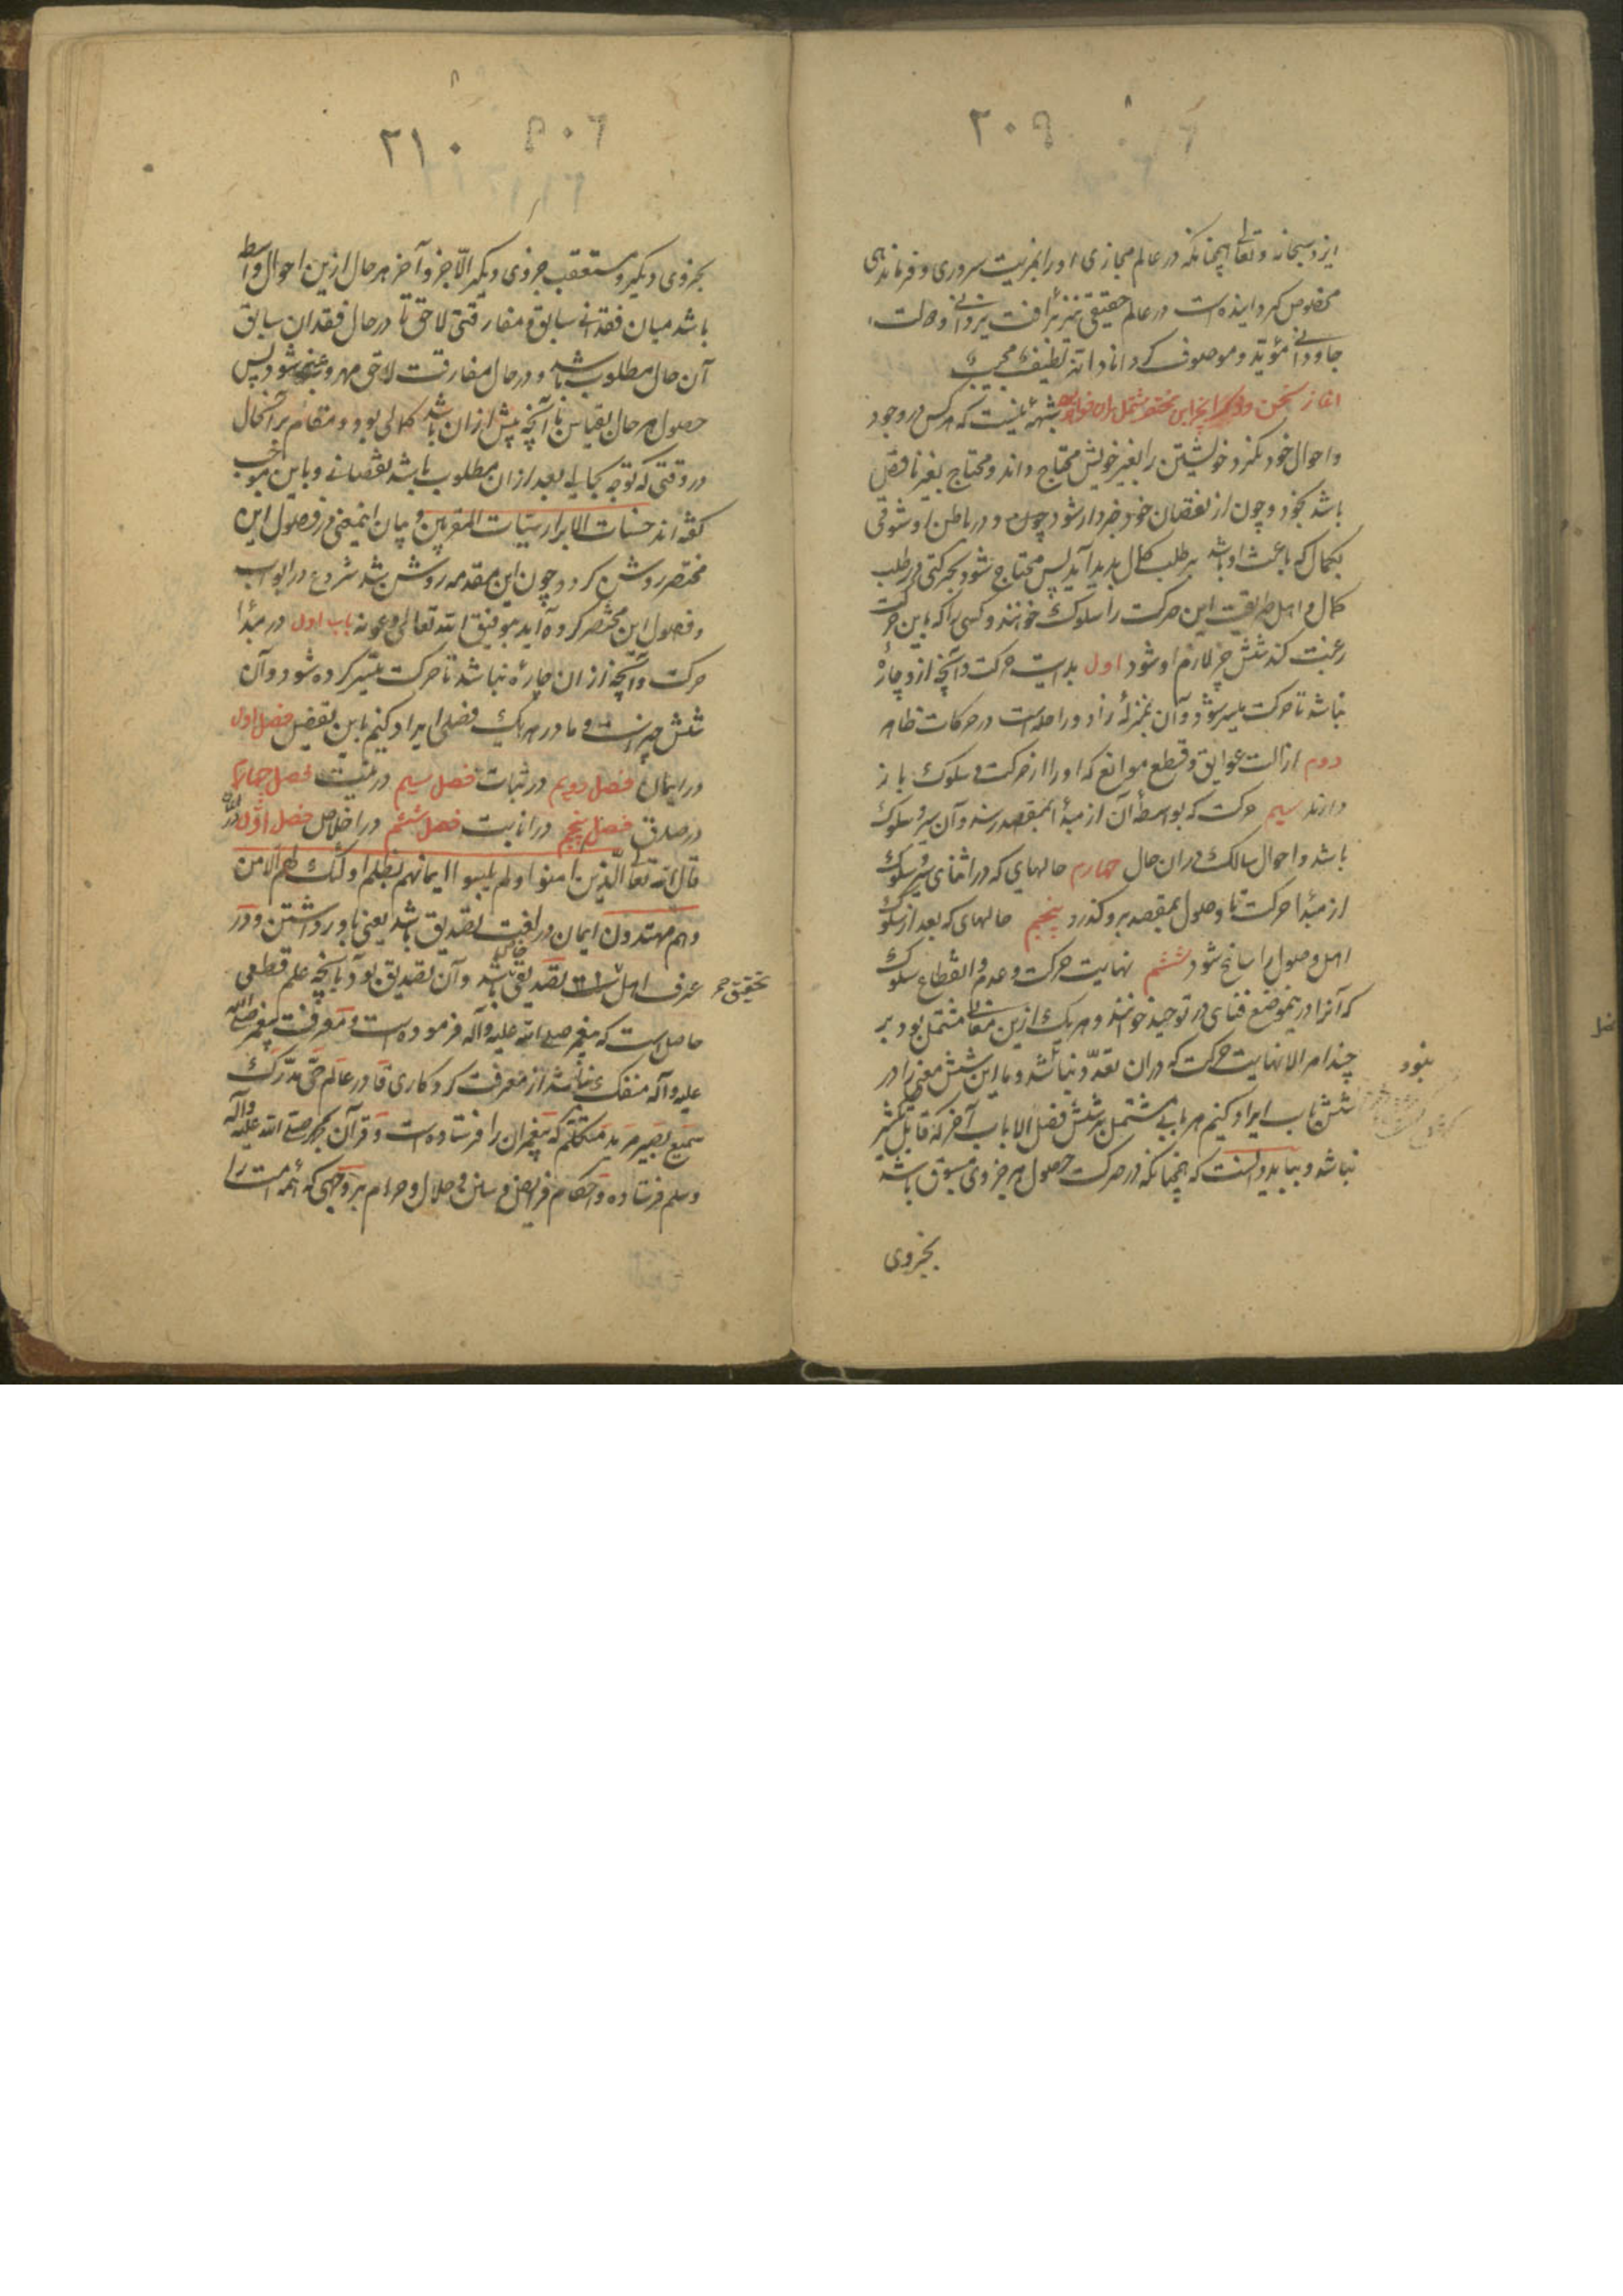 ۲۰۹
ایزد سبحانه و تعالی همچنانکه در عالم مجازی او را بمزیت سروری و فرماندهی
مخصوص کردانیده است در عالم حقیقی نیز بزافت یزدانی و دولت
جاودانی مؤید و موصوف کرداناد انه لطیف مجیب
اغاز سخن و ذکر آنچه این مختصر مشتمل بران خواهد بود شبهه نیست که هرکس در وجود
و احوال خود نکرد خویشتن را بغیر خویش محتاج داند و محتاج بغیر ناقص
باشد بخود و چون از نقصان خود خبردار شود چون و در باطن او شوقی
بکمال که باعث او باشد بر طلب کمال پدید آید پس محتاج شود بحرکتی در طلب
کمال و اهل طریقت این حرکت را سلوک خوانند و کسی را که باین حرکت
رغبت کند شش چیز لازم او شود اول بدایت حرکت و آنچه از و چارهٔ
نباشد تا حرکت میسر شود و آن بمنزلهٔ زاد و راحله است در حرکات ظاهر
دوم ازالت عوایق و قطع موانع که او را از حرکت و سلوک باز
دارند سیم حرکت که بواسطهٔ آن از مبدأ بمقصد رسند و آن سیر و سلوک
باشد و احوال سالک در ان حال چهارم حالهای که در اثنای سیر و سلوک
از مبدأ حرکت تا وصول بمقصد برو کذرد پنجم حالهای که بعد از سلوک
اهل وصول را سانح شود ششم نهایت حرکت و عدم و انقطاع سلوک
که آنرا درین موضع فنای در توحید خوانند و هر یک ازین معانی مشتمل بود بر
چند امر الا نهایت حرکت که دران تعدد نباشد و ما این شش معنی را در
نبود
شش باب ایراد کنیم هر بابی مشتمل بر شش فصل الا باب آخر که قابل تکثر
نباشد و بباید دانست که همچنانکه در حرکت حصول هر جزوی مسبوق باشد
بجزوی
۲۱۰
بجزوی دیکر و مستعقب جزوی دیکر الا جزو آخر هر حال ازین احوال واسطه
باشد میان فقدانی سابق و مفارقتی لاحق تا در حال فقدان سابق
آن حال مطلوب باشد و در حال مفارقت لاحق مهروب عنه شود پس
حصول هر حال بقیاس با آنچه پیش ازان باشد کمالی بود و مقام بر آنحال
در وقتی که توجه بحالی بعد ازان مطلوب باشد نقصانی و باین موجب
کفته اند حسنات الابرار سیئات المقربین و بیان اینمعنی در فصول این
مختصر روشن کردد و چون این مقدمه روشن شد شروع در ابواب
و فصول این مختصر کرده آید بتوفیق الله تعالی و عونه باب اول در مبدأ
حرکت و آنچه از ان چارهٔ نباشد تا حرکت میسر کرده شود و آن
شش چیز است و ما در هر یک فصلی ایراد کنیم باین تفصیل فصل اول
در ایمان فصل دویم در ثبات فصل سیم در نیت فصل چهارم
در صدق فصل پنجم در انابت فصل ششم در اخلاص فصل اول در ایمان
قال الله تعا الذین امنوا و لم یلبسوا ایمانهم بظلم اولئک لهم الامن
و هم مهتدون ایمان در لغت تصدیق باشد یعنی باور داشتن و در
عرف اهل تحقیق تصدیقی خاص باشد و آن تصدیق بود بآنچه علم قطعی
حاصل است که پیغمبر صلی الله علیه و آله فرموده است و معرفت پیغمبر صلی الله
علیه و آله منفک نباشد از معرفت کردکاری قادر عالم حی مدرک
سمیع بصیر مرید متکلم که پیغمبران را فرستاده است و قرآن بمحمد صلی الله علیه و آله
و سلم فرستاده و احکام فرایض و سنن و حلال و حرام بر وجهی که همه امت را